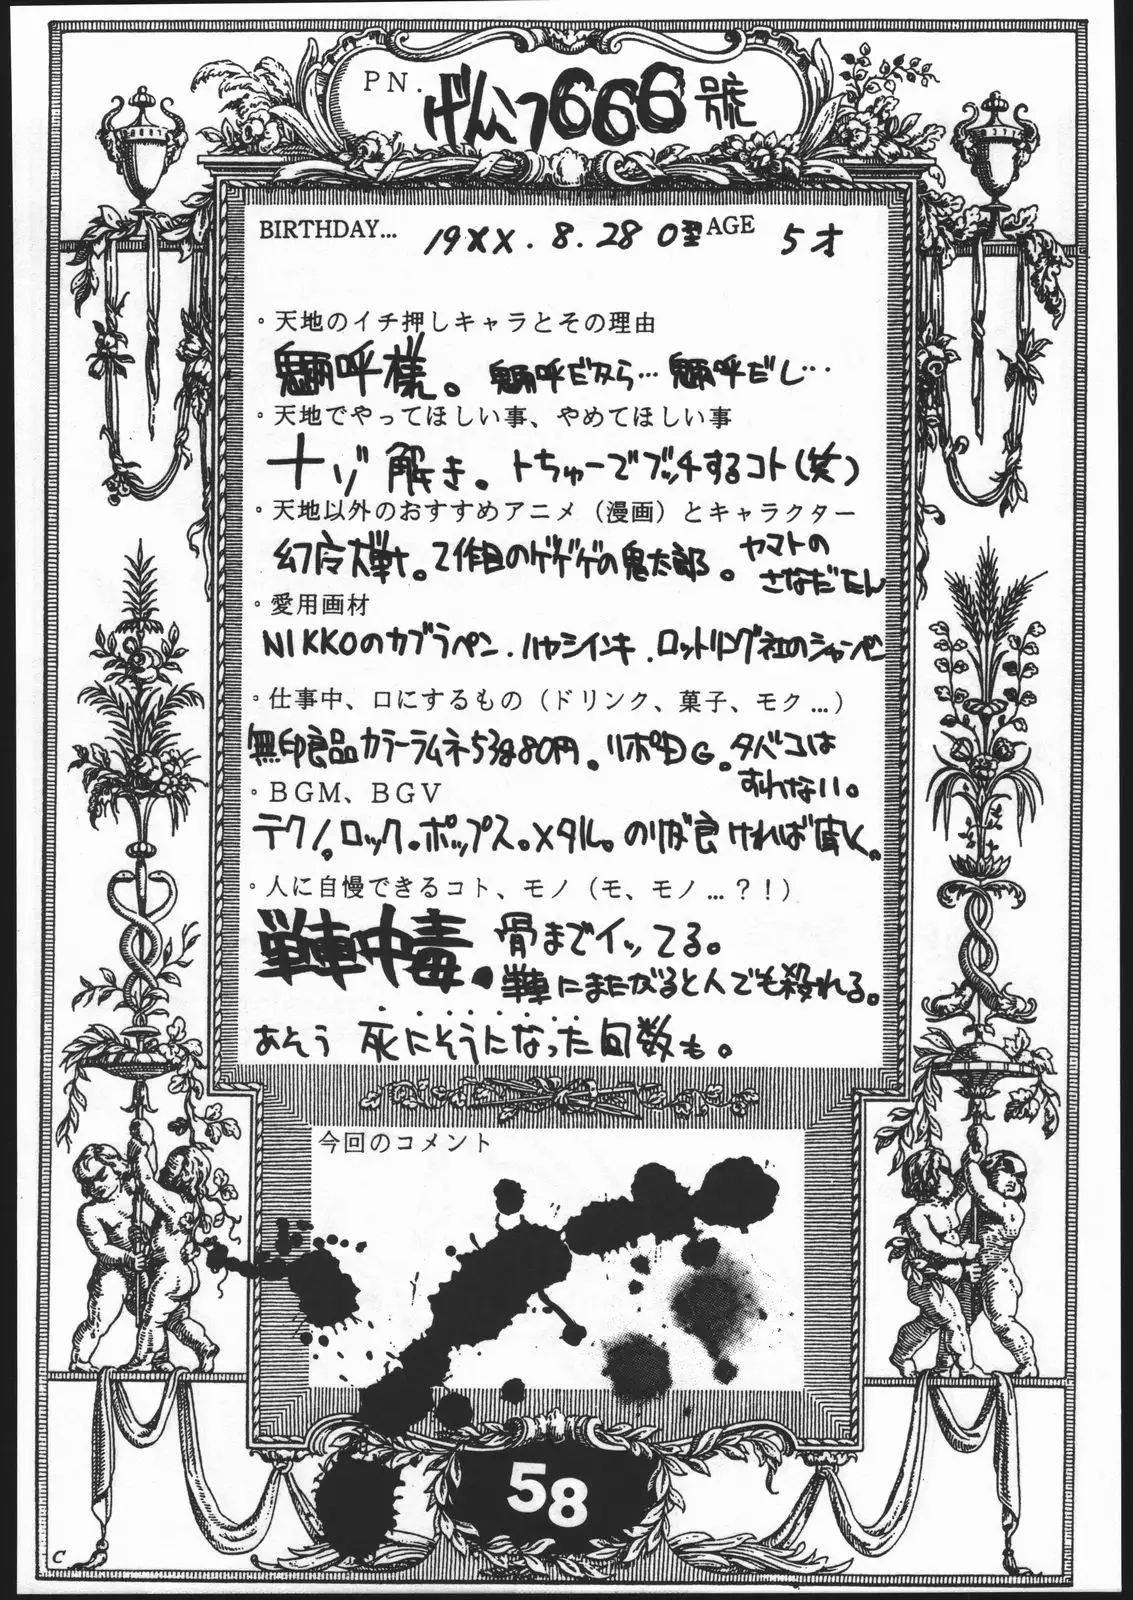 PN. げんこつ666號
BIRTHDAY... 19XX. 8. 28 O型 AGE 5才
・天地のイチ押しキャラとその理由
魎呼様。 魎呼だから… 魎呼だし…
・天地でやってほしい事、やめてほしい事
ナゾ解き。トちゅーでブッチするコト(笑)
・天地以外のおすすめアニメ（漫画）とキャラクター
幻魔大戦。2作目のゲゲゲの鬼太郎。ヤマトの
さなだたん
・愛用画材
NIKKOのカブラペン.ハヤシインキ.ロットリング社のシャーペン
・仕事中、口にするもの（ドリンク、菓子、モク…）
無印良品カラーラムネ53g80円。リポDG。タバコは
すわない。
・BGM、BGV
テクノ。ロック。ポップス。メタル。のりが良ければ良し。
・人に自慢できるコト、モノ（モ、モノ…？！）
単車中毒。骨までイッてる。
単車にまたがると人でも殺れる。
あそう 死にそうになった回数も。
今回のコメント
58
C